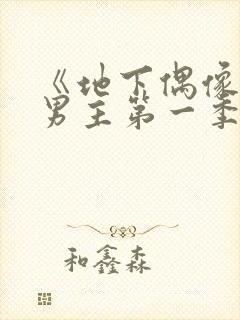 《地下偶像
男主第一季
和鑫森